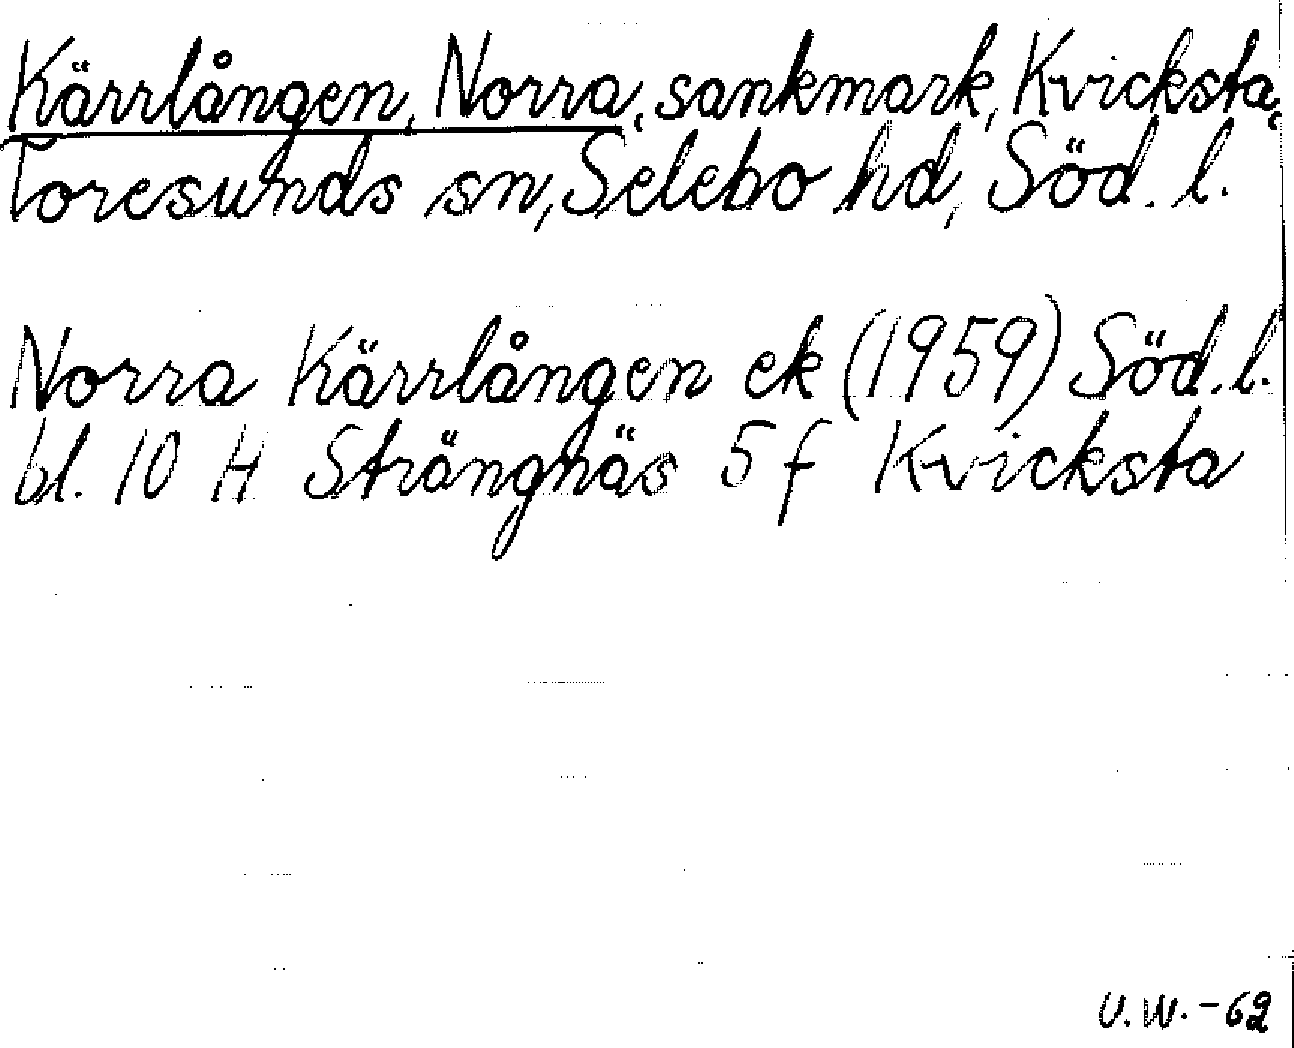 Kärrlången, Norra, sankmark, Kvicksta,
Toresunds sn, Selebo hd, Söd. l.
Norra Kärrlången ek (1959) Söd. l.
bl. 10 H Strängnäs 5 f Kvicksta
U. W. - 62